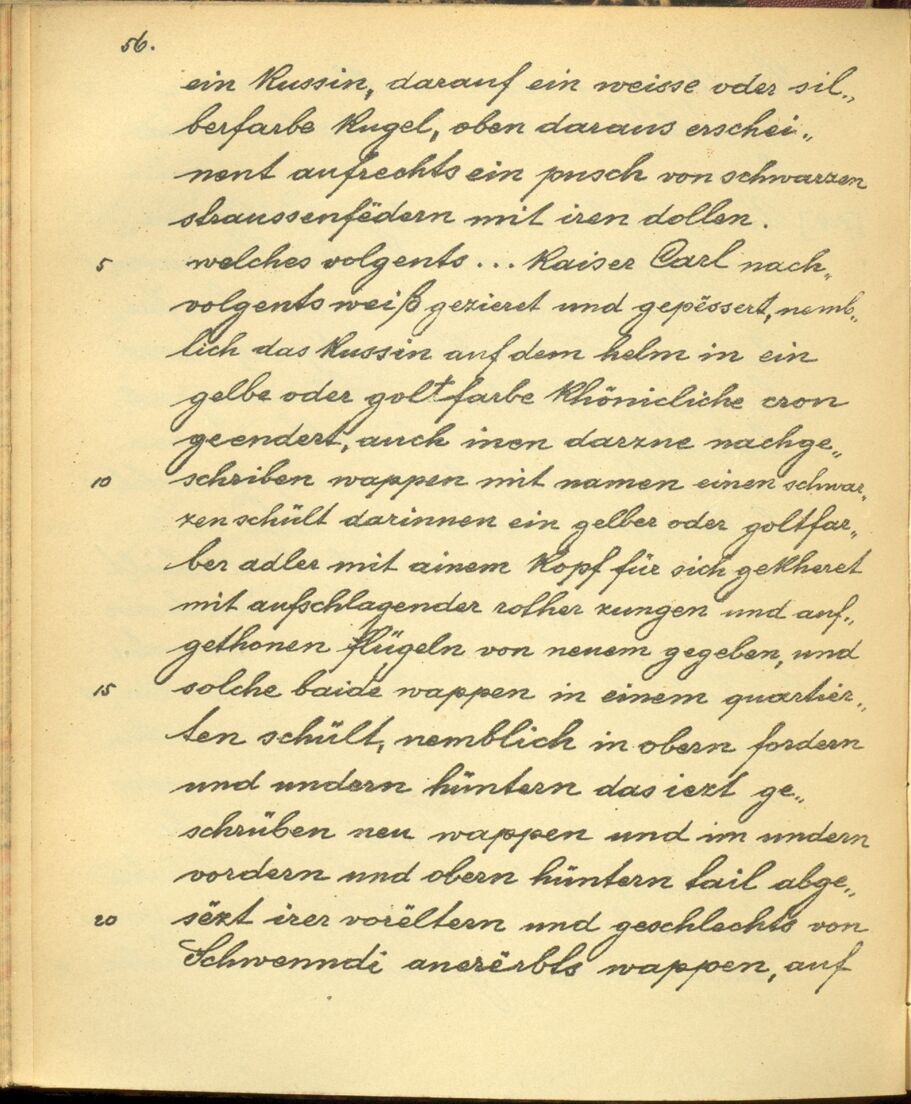 56.
ein Kussin, darauf ein weisse oder sil„
berfarbe Kugel, oben daraus erschei„
nent aufrechts ein pusch von schwarzen
straussenfëdern mit iren dollen.
5 welches volgents... Kaiser Carl nach„
volgents weiß gezieret und gepëssert, nemb„
lich das Kussin auf dem helm in ein
gelbe oder goltfarbe Khönicliche cron
geendert, auch inen darzue nachge„
10 schriben wappen mit namen einen schwar„
zen schült darinnen ein gelber oder goltfar„
ber adler mit ainem Kopf für sich gekheret
mit aufschlagender rother zungen und auf„
gethonen flügeln von neuem gegeben, und
15 solche baide wappen in einem quartier„
ten schült, nemblich in obern fordern
und undern hüntern das iezt ge„
schrüben neu wappen und im undern
vordern und obern hüntern tail abge„
20 sëzt irer vorëltern und geschlechts von
Schwenndi anererbts wappen, auf